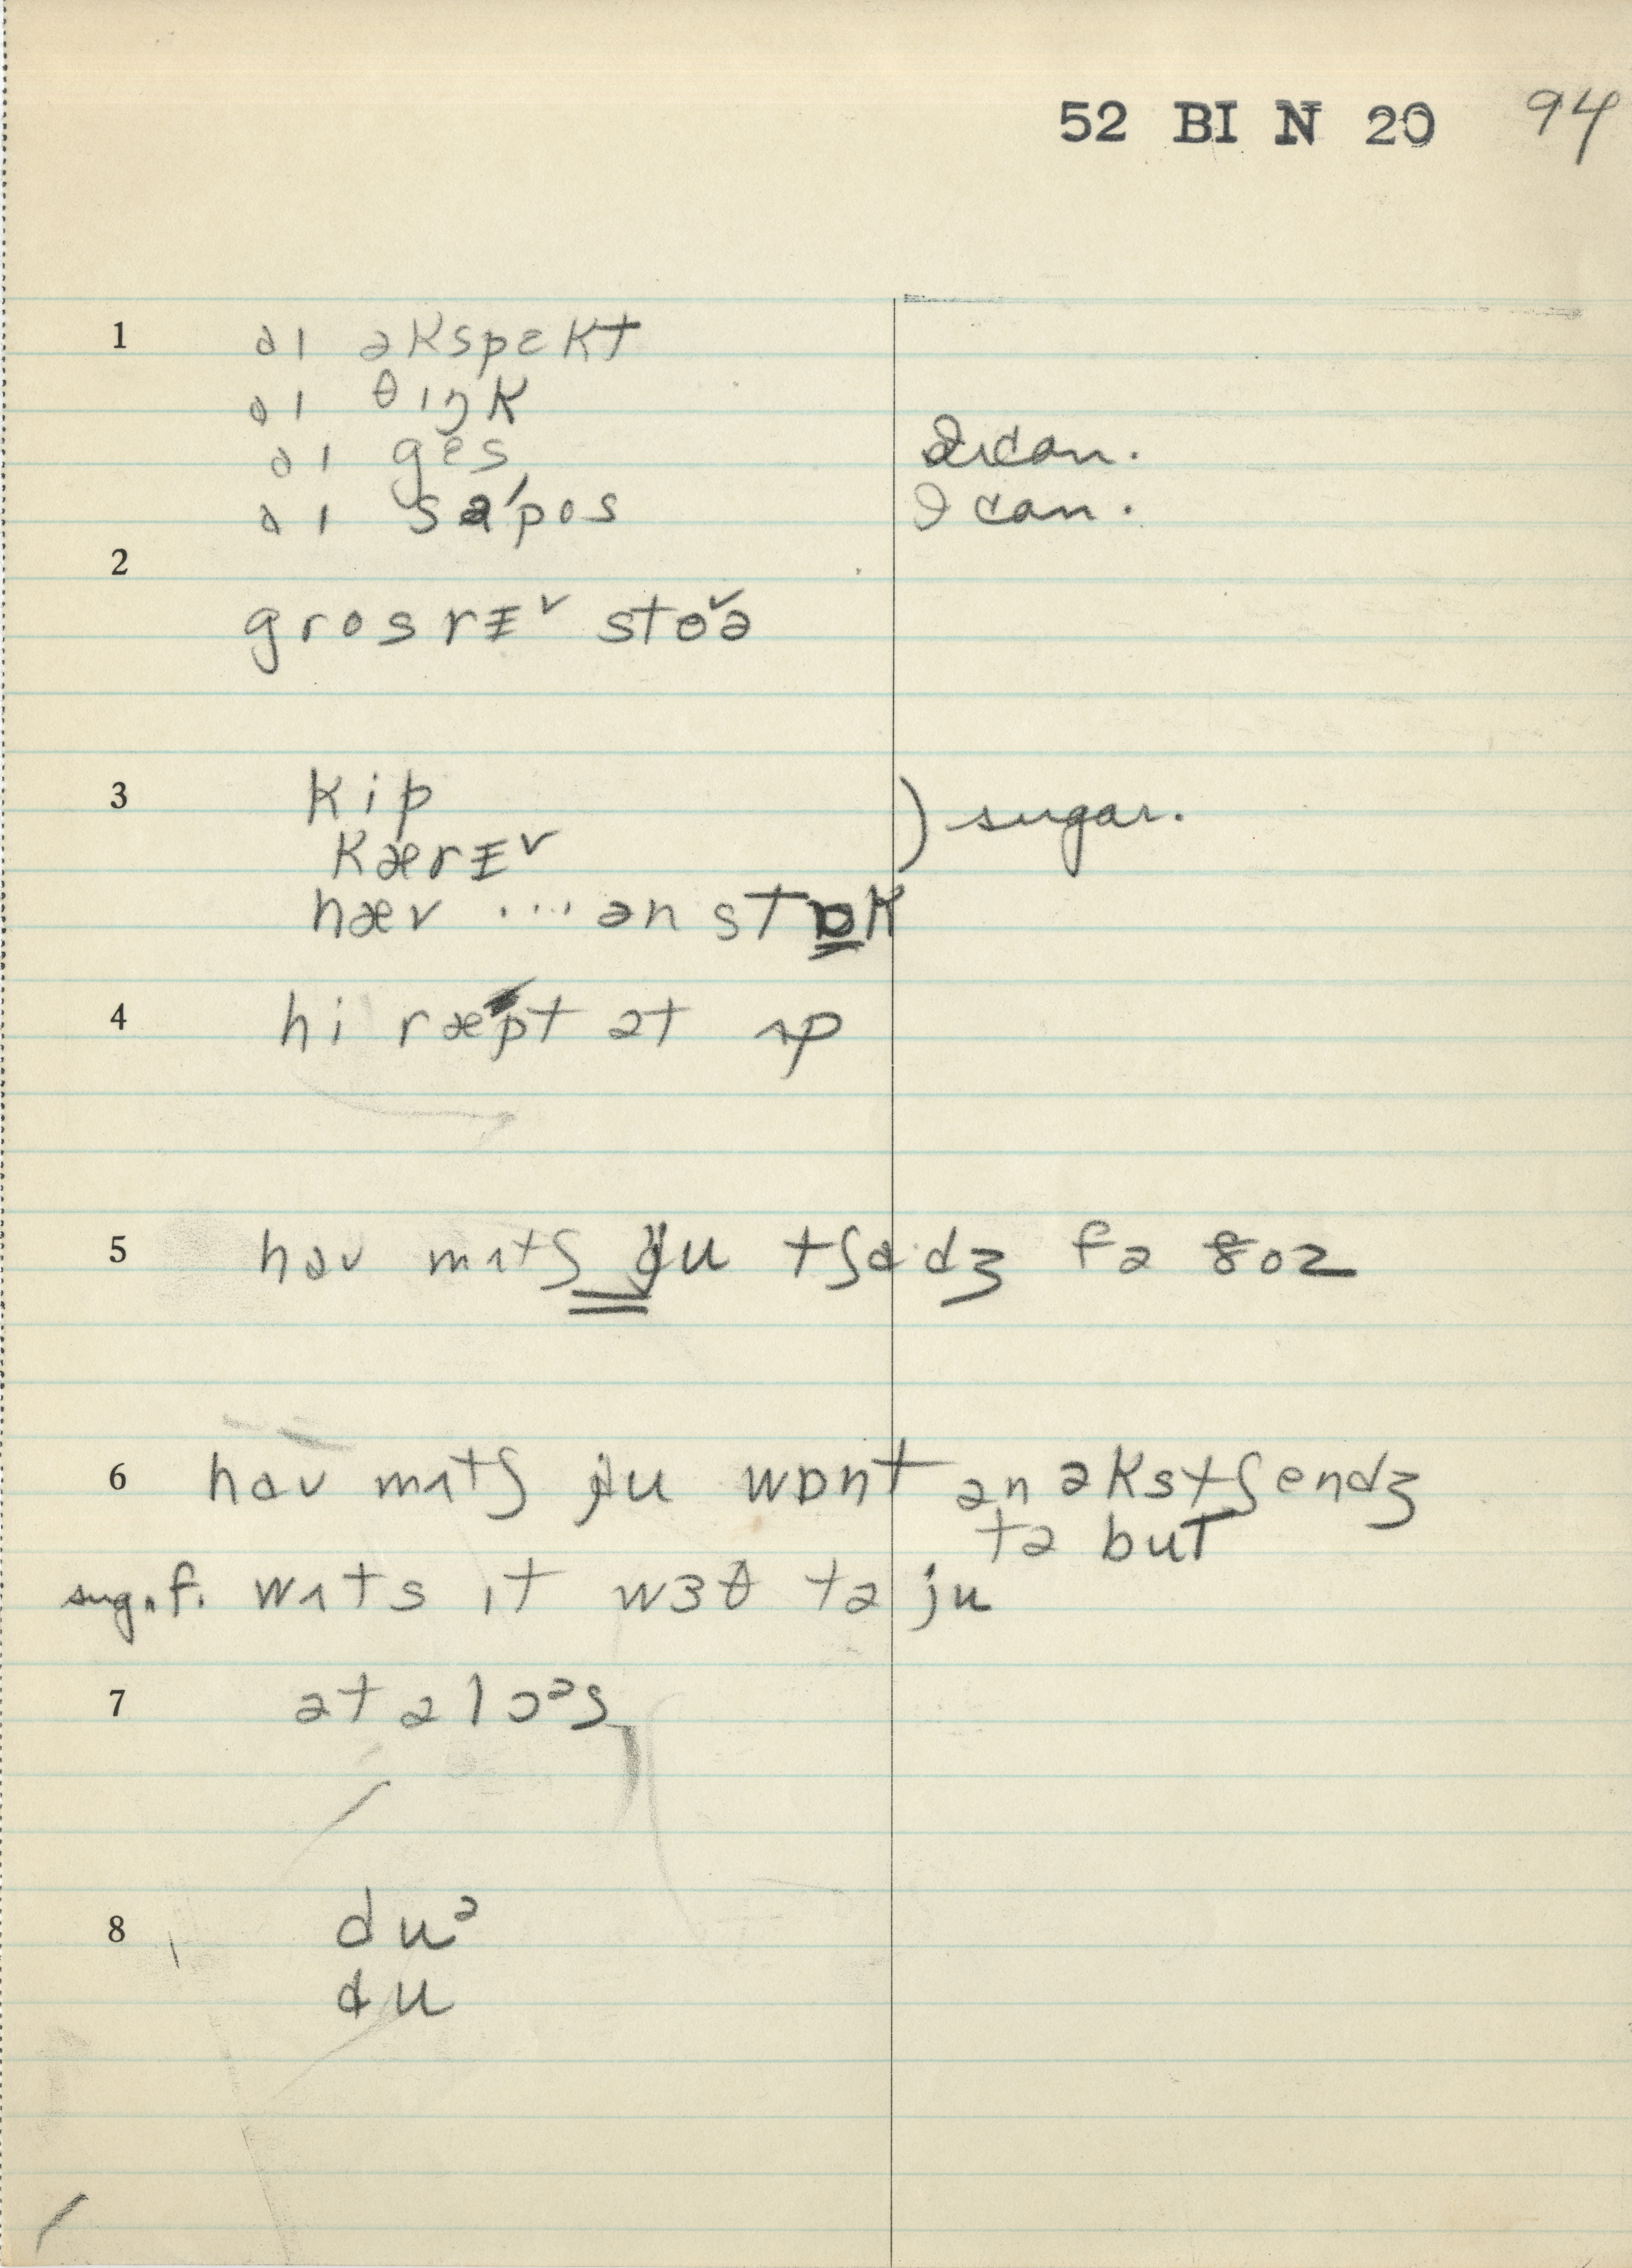 52 BI N 20 94
1 aɪ əkspɛkt
aɪ θɪŋk
aɪ gɛs I can.
aɪ sə'pos I can.
2
grosrɪ˅ sto˅ə
3 kip ) sugar.
kærɪ˅
hæv ... ən stɒk
4 hi ræpt ət ʌp
5 haʊ mʌtʃ ju tʃadʒ fə ðoz
6 haʊ mʌtʃ ju wɒnt ən əkstʃendʒ
tə but
sug.f. wʌts ɪt wɜθ tə ju
7 ət ə lɔᵊs
8 duᵊ
du